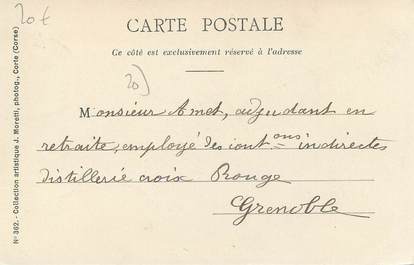 20 €
CARTE POSTALE
Ce côté est exclusivement réservé à l'adresse
20)
Monsieur Amet, adjudant en
retraite, employé des cont ons indirectes
distillerie croix Rouge
Grenoble
N° 362. - Collection artistique J. Moretti, photog., Corte (Corse)